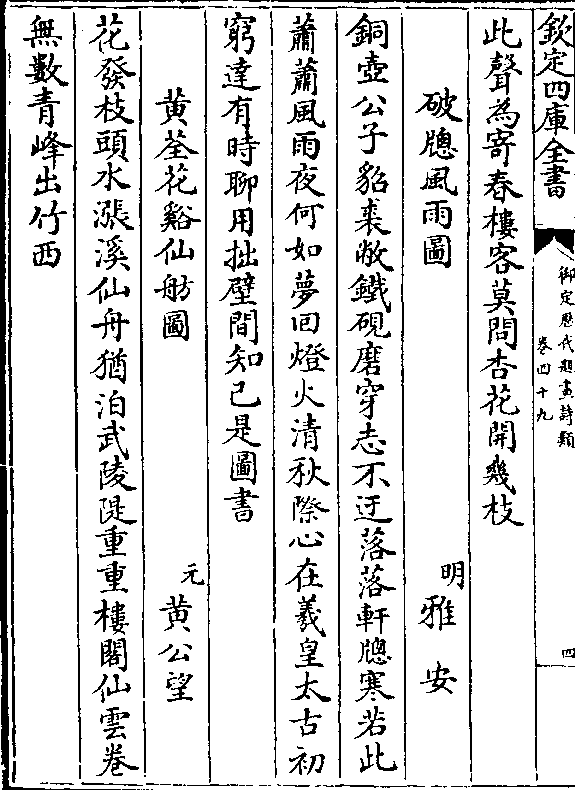 欽定四庫全書
御定歷代題畫詩類
卷四十九
四
此聲為寄春樓客莫問杏花開幾枝
破牕風雨圖
明 雅安
銅壺公子貂裘敝鐵硯磨穿志不迂落落軒牕寒若此
蕭蕭風雨夜何如夢回燈火清秋際心在羲皇太古初
窮達有時聊用拙壁間知己是圖書
黄荃花谿仙舫圖
元 黄公望
花發枝頭水漲溪仙舟猶泊武陵隄重重樓閣仙雲卷
無數青峰出竹西